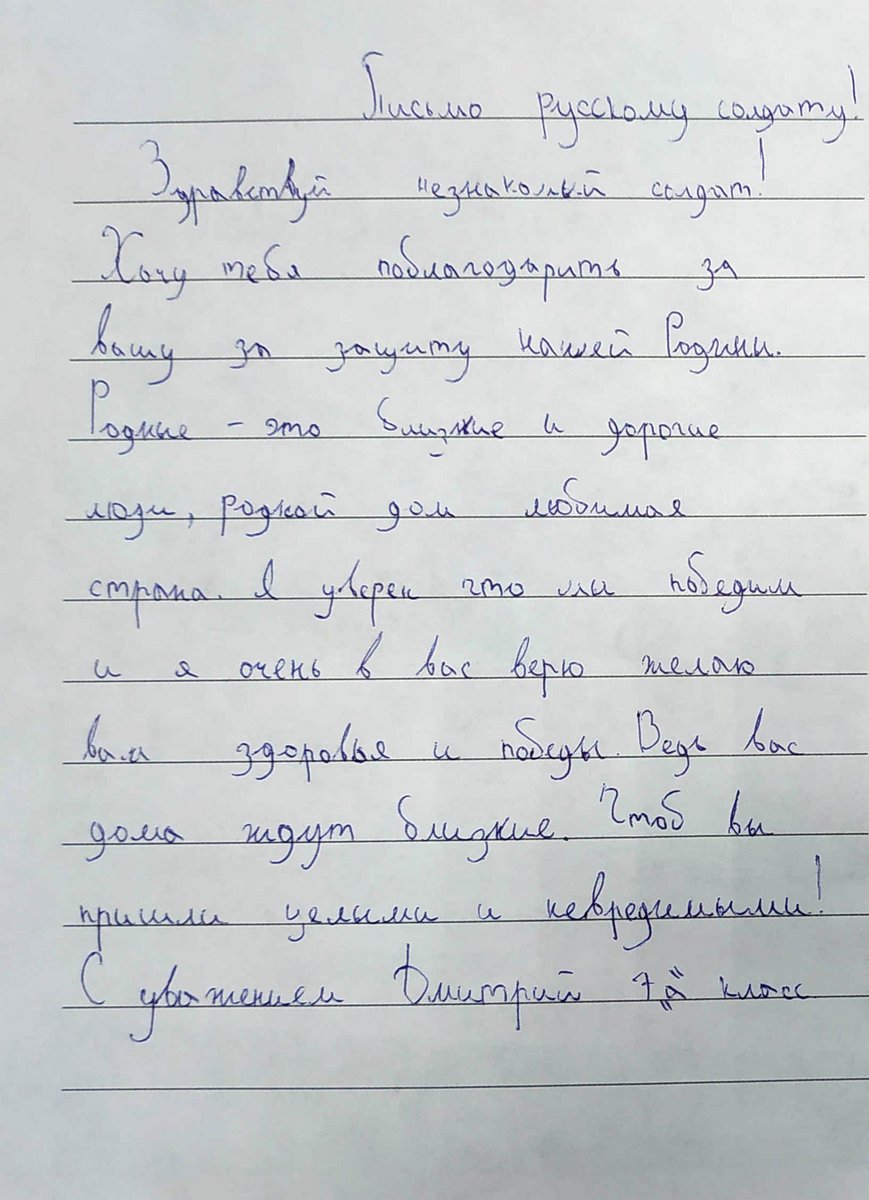 Письмо русскому солдату!
Здравствуй незнакомый солдат!
Хочу тебя поблагодарить за
вашу за защиту нашей Родини.
Родные - это близкие и дорогие
люди, родной дом любимая
страна. Я уверен что ми победим
и я очень в вас верю желаю
вам здоровья и победы. Ведь вас
дома ждут близкие. Чтоб вы
пришли целыми и невредимыми!
С уважением Дмитрий 7 „а“ класс